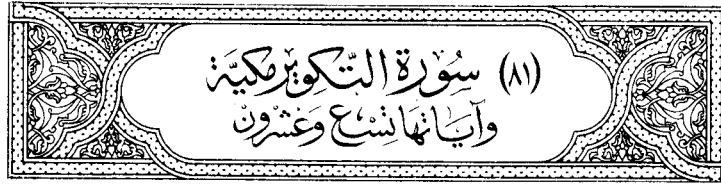 (٨١) سُورَة التَّكويْر مَكيَّة
وَآيَاتهَا تِسْع وَعِشْرُونْ